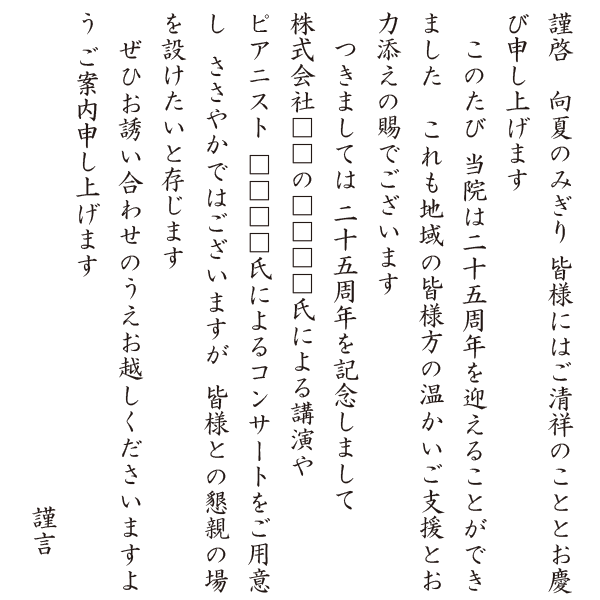 謹啓　向夏のみぎり 皆様にはご清祥のこととお慶
び申し上げます
　このたび 当院は二十五周年を迎えることができ
ました　これも地域の皆様方の温かいご支援とお
力添えの賜でございます
　つきましては 二十五周年を記念しまして
株式会社□□の□□□□氏による講演や
ピアニスト □□□□氏によるコンサートをご用意
し ささやかではございますが 皆様との懇親の場
を設けたいと存じます
　ぜひお誘い合わせのうえお越しくださいますよ
う ご案内申し上げます
謹言